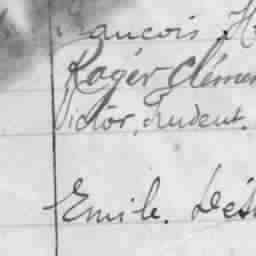 ançois H
Rogér Clémen
Victor, prudent.
Emile. Dés